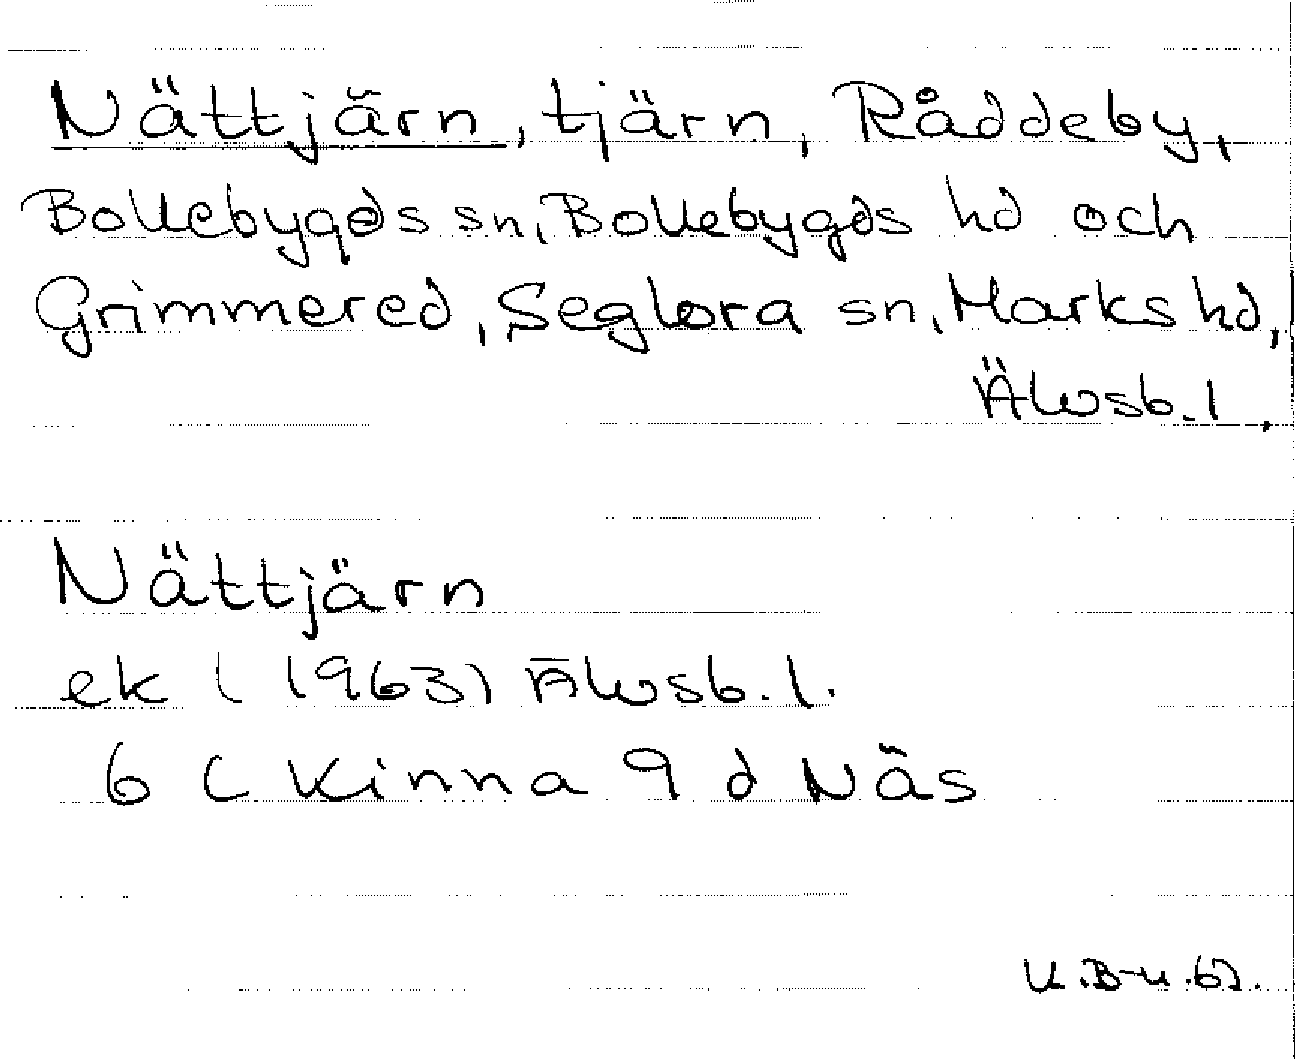 Nättjärn, tjärn, Råddeby,
Bollebygds sn, Bollebygds hd och
Grimmered, Seglora sn, Marks hd,
Älvsb. l.
Nättjärn
ek ( (1963) Älvsb. l.
6 C Kinna 9 d Näs